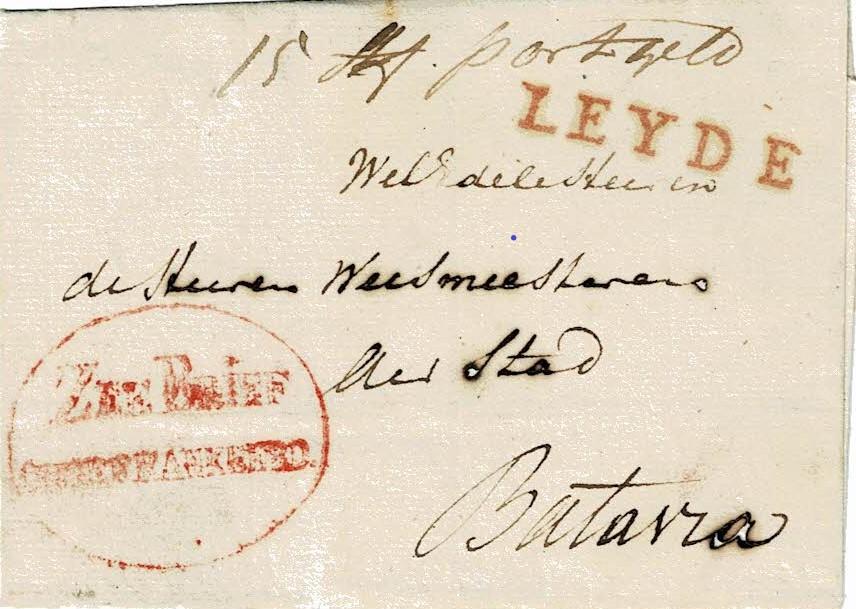 15 portgeld
LEYDE
Wel Edele Heeren
de Heeren Weesmeesteren
der Stad
ZEE BRIEF
ONGEFRANKEERD.
Batavia